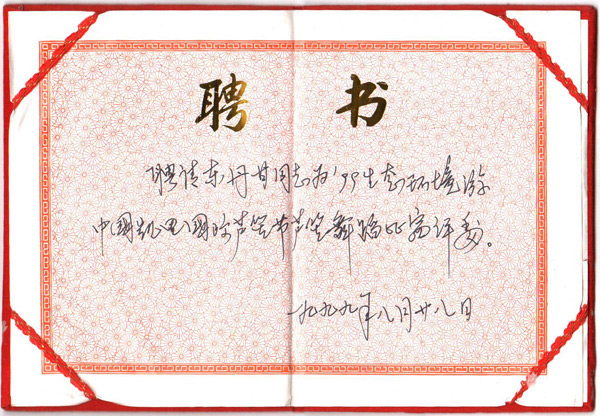 聘书
聘请东丹甘同志为'99生态环境游
中国凯里国际芦笙节芦笙舞踏比赛评委。
一九九九年八月廿八日